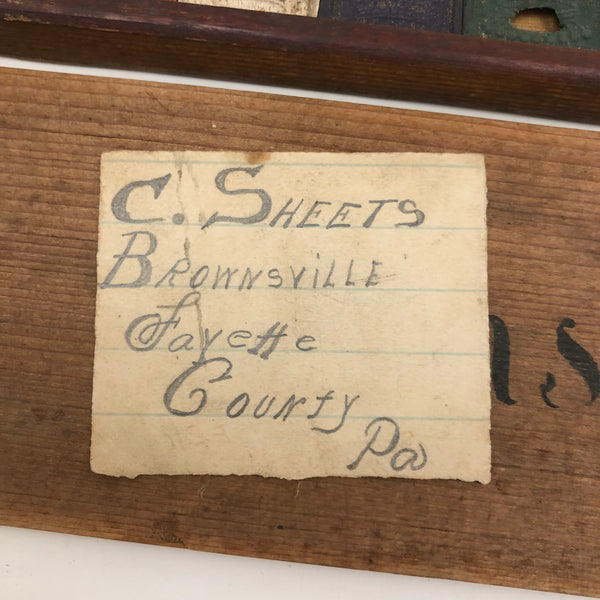 C. SHEETS
BROWNSVILLE
Fayette
County
Pa